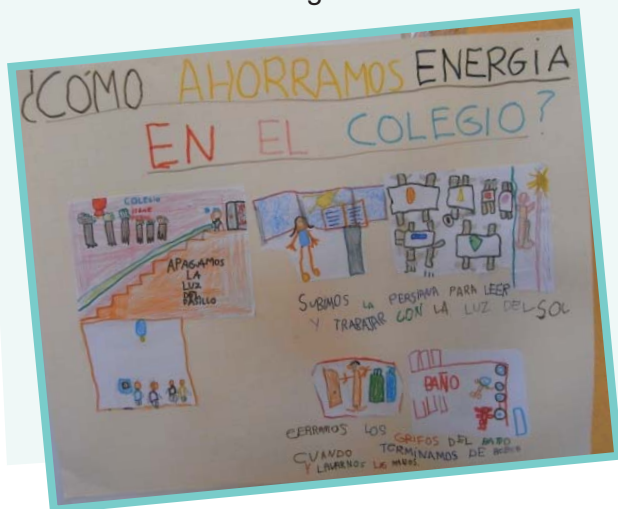 ¿CÓMO AHORRAMOS ENERGÍA
EN EL COLEGIO?
COLEGIO
APAGAMOS
LA
LUZ
DEL
PASILLO
SUBIMOS LA PERSIANA PARA LEER
Y TRABAJAR CON LA LUZ DEL SOL
BAÑO
CERRAMOS LOS GRIFOS DEL BAÑO
CUANDO TERMINAMOS DE
Y LAVARNOS LAS MANOS